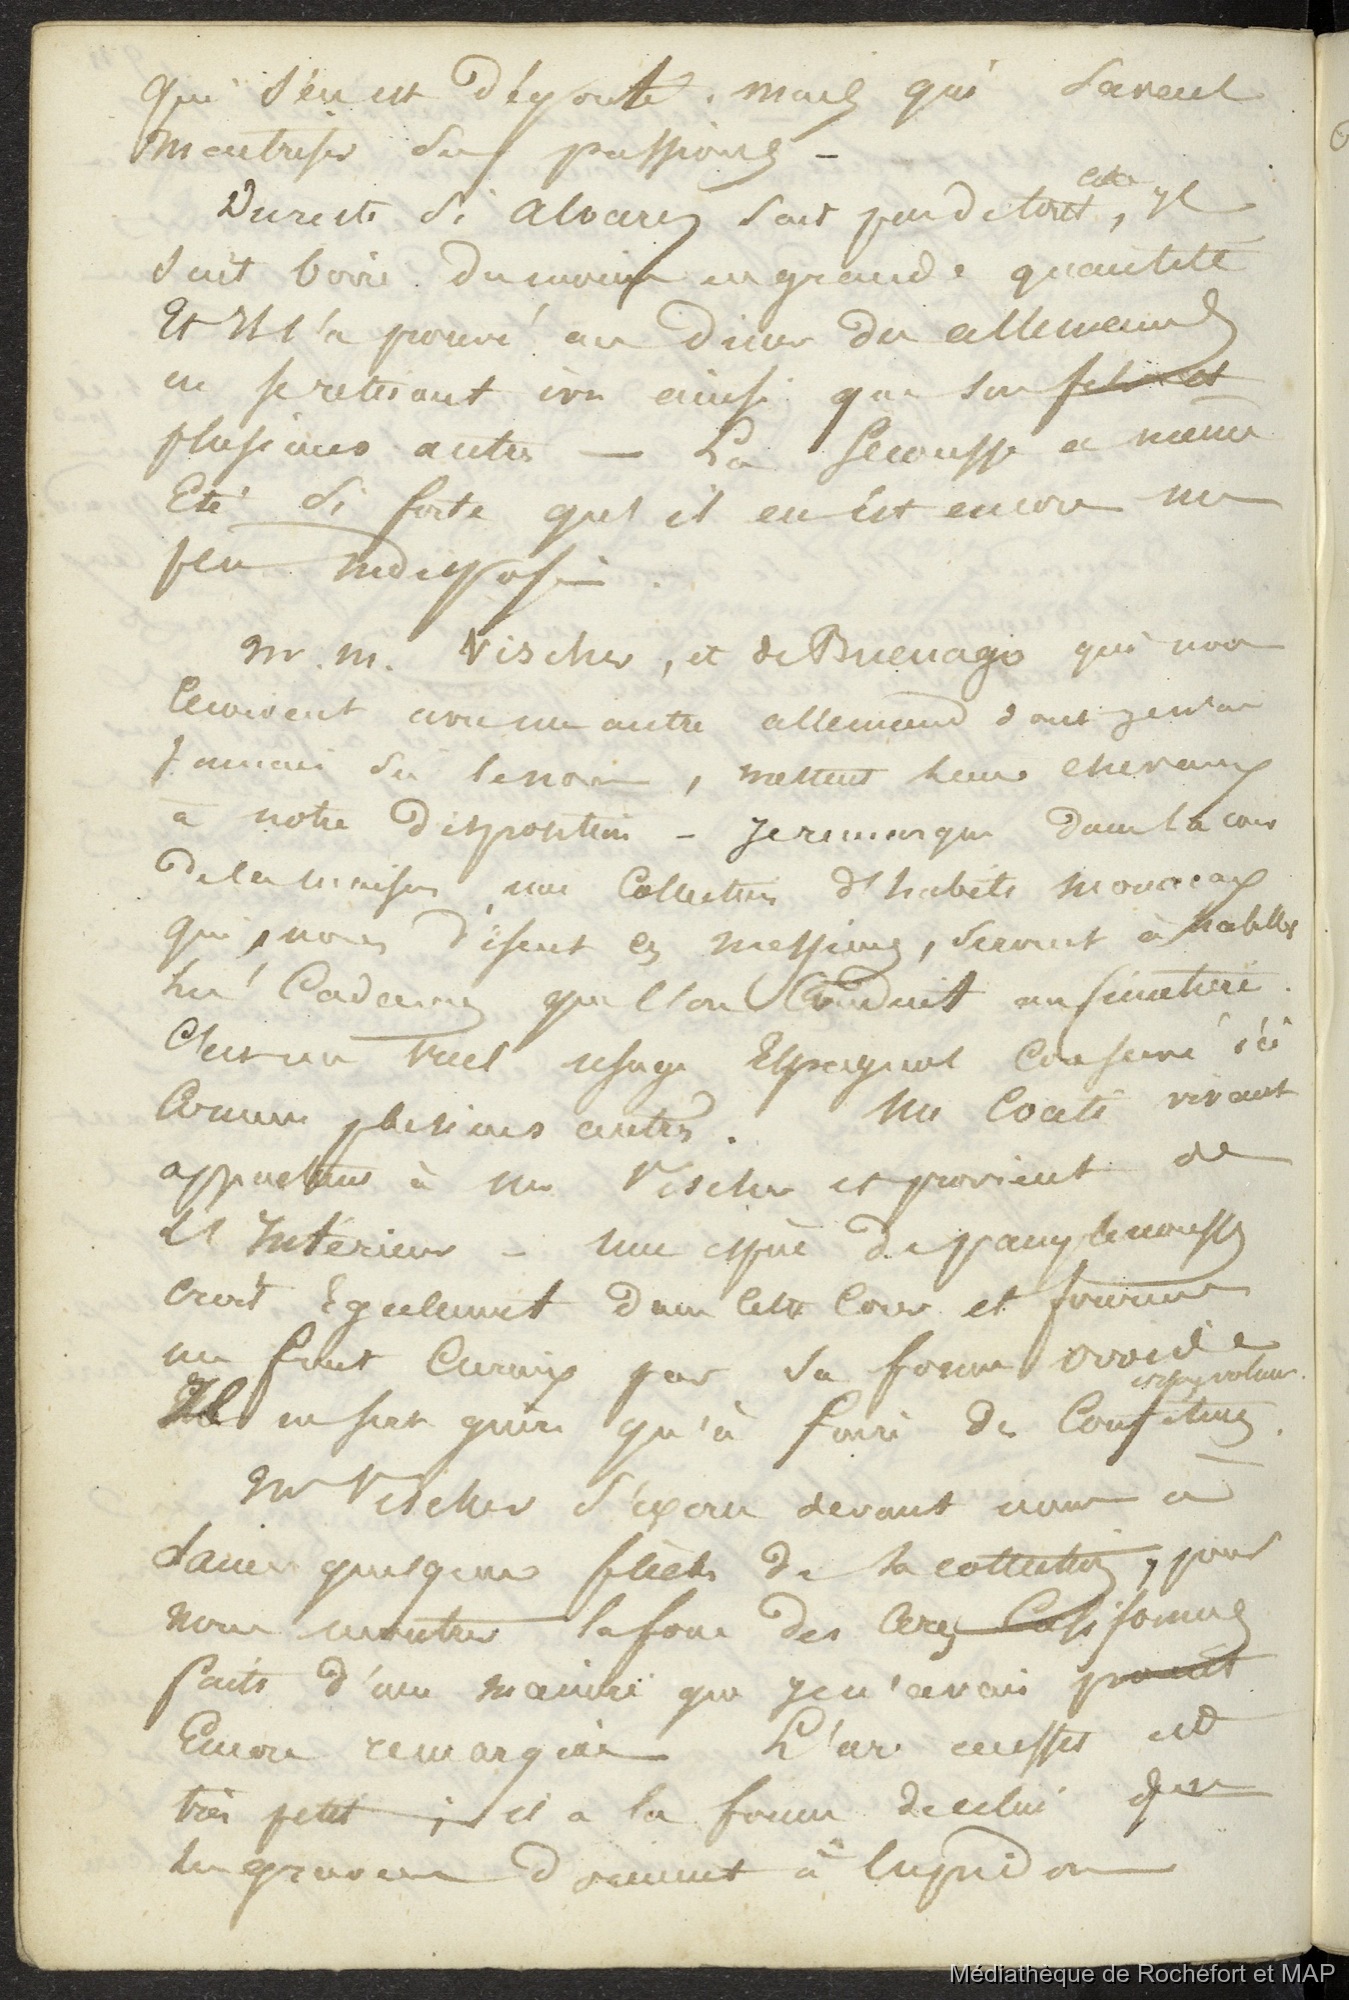 qui s'en est dégouté. mais qui savent
maitriser ses passions -
Du reste si Alvarez sait peu de tout cela, Il
sait boire du moins en grande quantité
Et Il l'a prouvé au diner des allemands
en se retirant ivre ainsi que son
plusieurs autres — La Secousse a même
Eté si forte qu'il en est encore un
peu indisposé.
M.M. Vischer, et de Buenaga qui nous
recoivent avec un autre allemand dont je n'ai
jamais su le nom, mettent leurs chevaux
à notre disposition - Je remarque dans la cour
de la maison une Collection d'habits monacaux
qui, nous disent ces messieurs, servent à habiller
les Cadavres que l'on Conduit au simetiere.
C'est un vieil usage Espagnol Conservé ici
Comme plusieurs autres. Un Coati vivant
appartient à Mr Vischer et provient de
l'Intérieur - une espèce de pamplemousse
croit Egalement dans cette Cour et fournit
un fruit Curieux par sa forme ovoide
et son volume.
Il ne sert guère qu'à faire des Confitures.
Mr Vischer s'exerce devant nous à
lancer quelques flèches de sa collection, pour
nous montrer la force des arcs Californiens
faits d'une manière que je n'avais point
Encore remarquée L'arc en effet est
très petit ; il a la forme de celui que
les graveurs donnent à Cupidon
Médiathèque de Rochefort et MAP